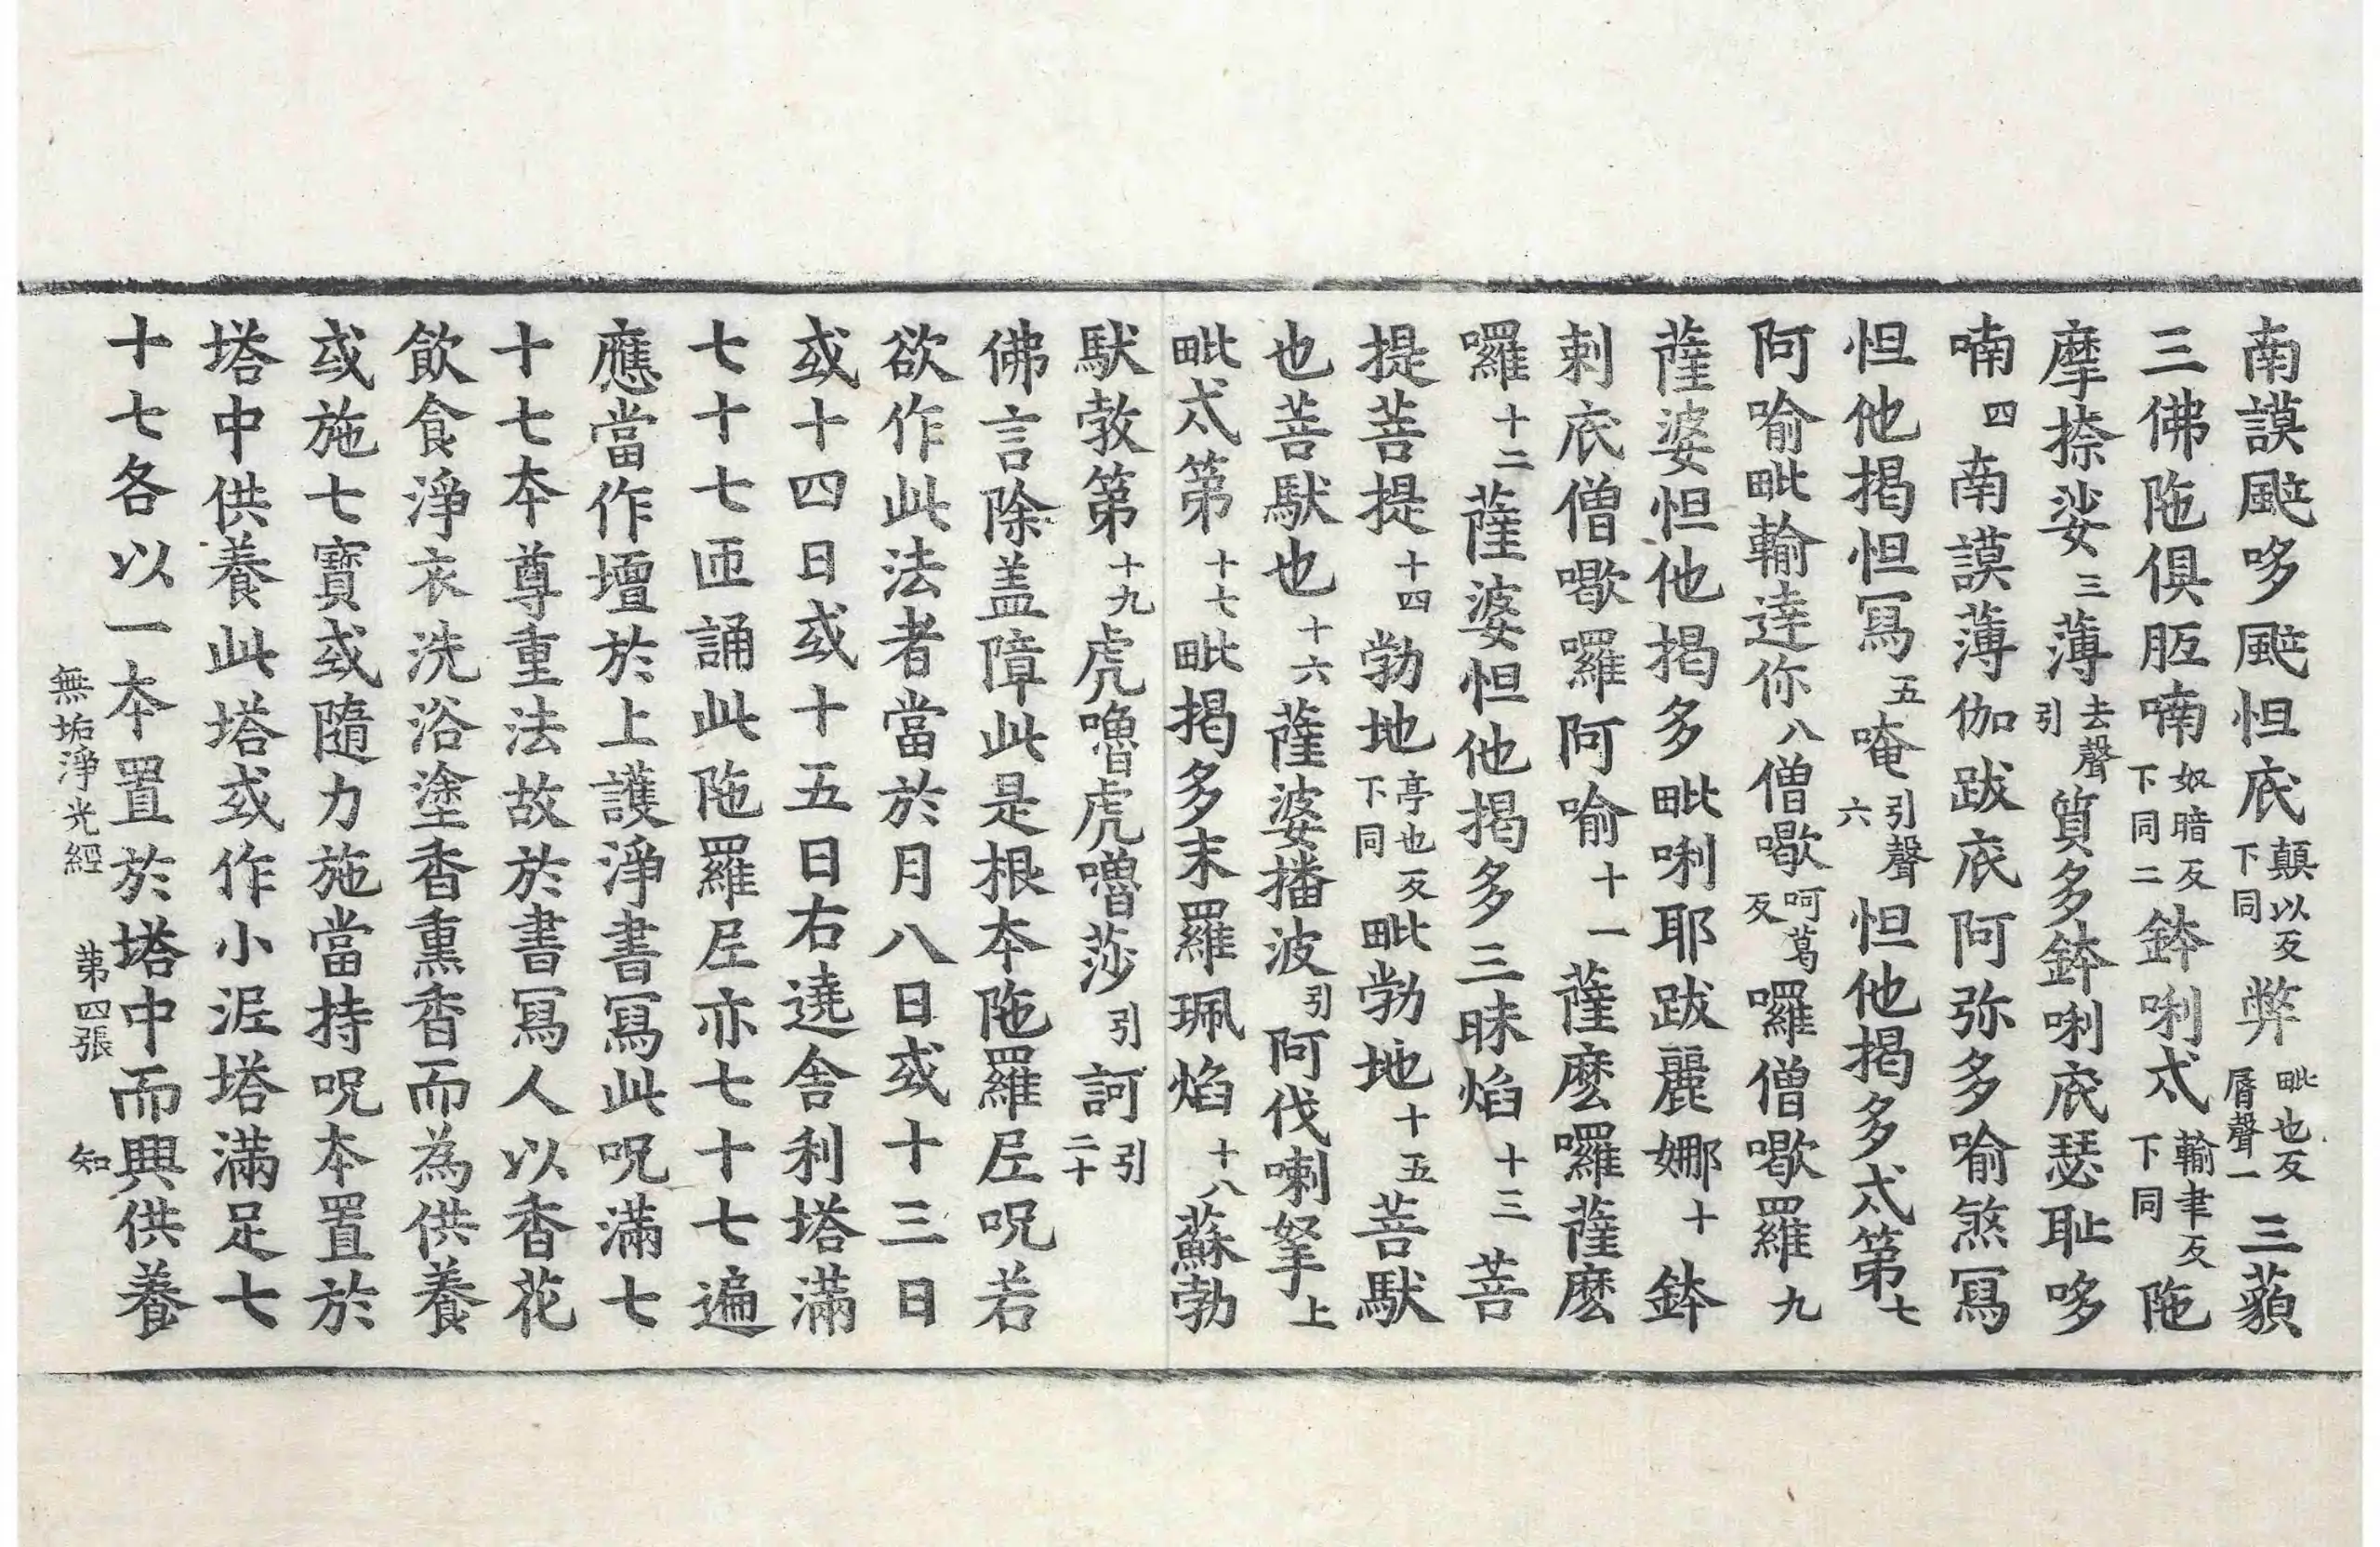 南謨颰哆颰怛底顛以反下同弊毗也反屑聲一三藐
三佛陁俱胝喃奴暗反下同二鉢唎㳲輸聿反下同陁
摩捺娑三薄去聲引質多鉢唎底瑟耻哆
喃四南謨薄伽跋底阿弥多喻煞冩
怛他揭怛冩五唵引聲六怛他揭多㳲第七
阿喻毗輸達你八僧噷呵葛反囉僧噷羅九
薩婆怛他揭多毗唎耶跋麗娜十鉢
剌底僧噷囉阿喻十一薩麽囉薩麽
囉十二薩婆怛他揭多三昧焰十三菩
提菩提十四勃地亭也反下同毗勃地十五菩䭾
也菩䭾也十六薩婆播波引阿伐喇拏上
毗㳲第十七毗揭多末羅珮焰十八蘇勃
䭾敎第十九虎嚕虎嚕莎引訶引二十
佛言除盖障此是根本陁羅尼呪若
欲作此法者當於月八日或十三日
或十四日或十五日右遶舍利塔滿
七十七匝誦此陁羅尼亦七十七遍
應當作壇於上護淨書冩此呪滿七
十七本尊重法故於書冩人以香花
飲食淨衣洗浴塗香熏香而為供養
或施七寶或隨力施當持呪本置於
塔中供養此塔或作小泥塔滿足七
十七各以一本置於塔中而興供養
無垢淨光經　第四張　知